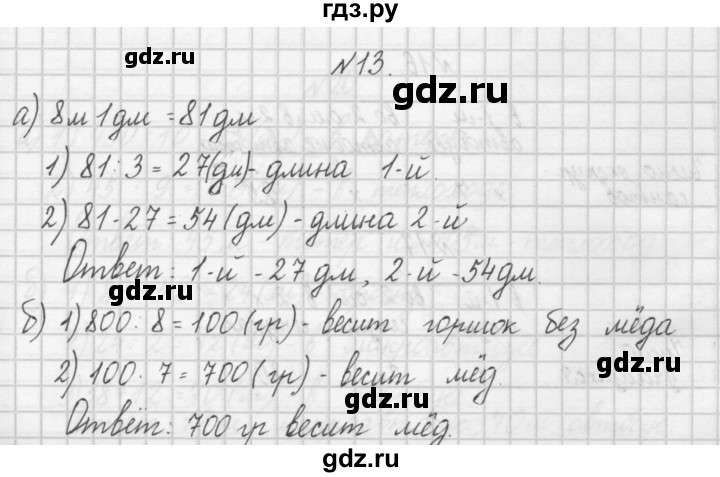 гдз.ру
gdz.ru
gdz.ru
№13.
а) 8м 1дм = 81дм
gdz.ru
1) 81 : 3 = 27(дм) - длина 1-й.
gdz.ru
2) 81 - 27 = 54 (дм) - длина 2-й
gdz.ru
Ответ: 1-й - 27 дм, 2-й - 54дм.
gdz.ru
б) 1) 800 : 8 = 100 (гр) - весит горшок без мёда
gdz.ru
2) 100 · 7 = 700 (гр) - весит мёд.
gdz.ru
Ответ: 700 гр весит мёд.
gdz.ru
gdz.ru